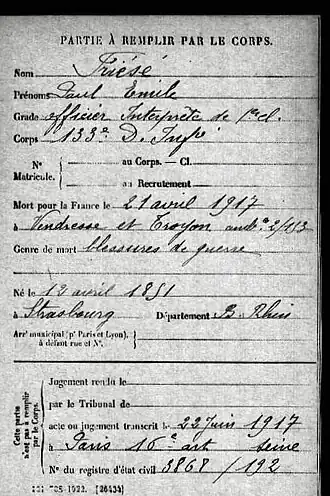 PARTIE À REMPLIR PAR LE CORPS.
Nom Friésé
Prénoms Paul Emile
Grade officier Interprète de 1re cl.
Corps 133e D. Infie
Nº Matricule. au Corps. — Cl.
au Recrutement
Mort pour la France le 21 avril 1917
à Vendresse et Troyon amb. 2/113
Genre de mort blessures de guerre
Né le 12 avril 1851
à Strasbourg Département B. Rhin
Arrt municipal (pr Paris et Lyon), à défaut rue et Nº.
Cette partie n'est pas à remplir par le Corps.
Jugement rendu le
par le Tribunal de
acte ou jugement transcrit le 22 juin 1917
à Paris 16e art Seine
Nº du registre d'état civil 3868/192
[26434]